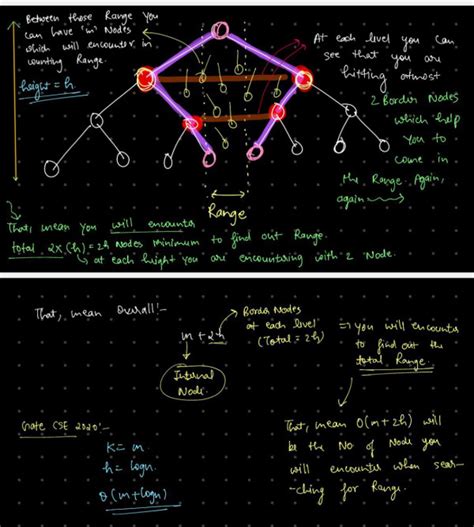 Between these Range you
can have 'm' Nodes
which will encounter in
counting Range.
height = h.
At each level you can
see that you are
hitting atmost
2 Border Nodes
which help
you to
come in
the Range Again,
again
Range
That, mean you will encounter
total 2x(h) = 2h Nodes minimum to find out Range.
at each height you are encountering with 2 Node.
That, mean Overall!-
m + 2h
Border Nodes
at each level
(Total = 2h)
Internal
Node.
=> you will encounter
to find out the
total Range.
Gate CSE 2020!-
K = m.
h = logn.
θ(m+logn)
That, mean O(m+2h) will
be the No of Node you
will encounter when sear-
-ching for Range.